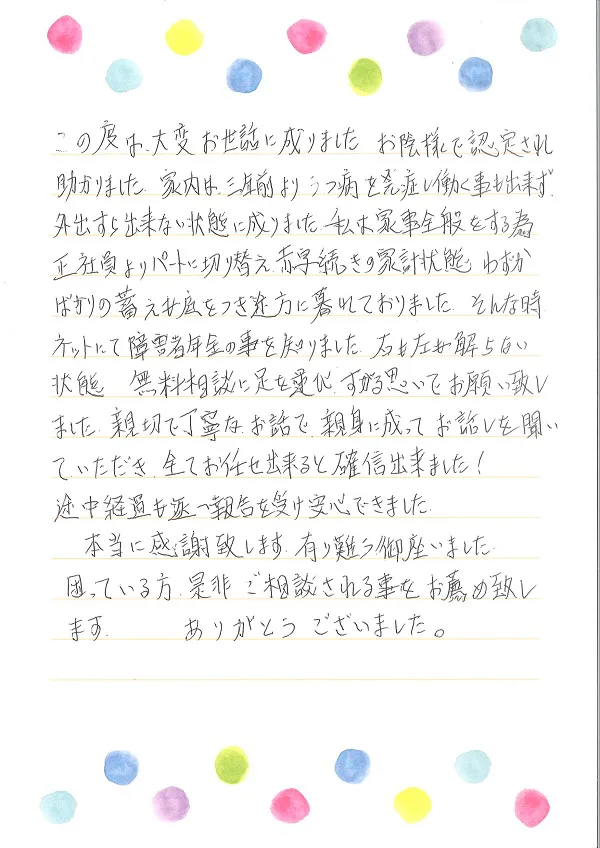 この度は、大変お世話に成りました お陰様で認定され
助かりました、家内は、三年前よりうつ病を発症し働く事も出来ず、
外出すら出来ない状態に成りました、私は家事全般をする為
正社員よりパートに切り替え、赤字続きの家計状態、わずか
ばかりの蓄えも底をつき途方に暮れておりました、そんな時
ネットにて障害者年金の事を知りました、右も左も解らない
状態 無料相談に足を運び、すがる思いでお願い致し
ました、親切で丁寧なお話で、親身に成ってお話しを聞い
て、いただき、全てお任せ出来ると確信出来ました!
途中経過も逐一報告を受け安心できました、
本当に感謝致します、有り難う御座いました、
困っている方、是非 ご相談される事をお薦め致し
ます、 ありがとうございました。